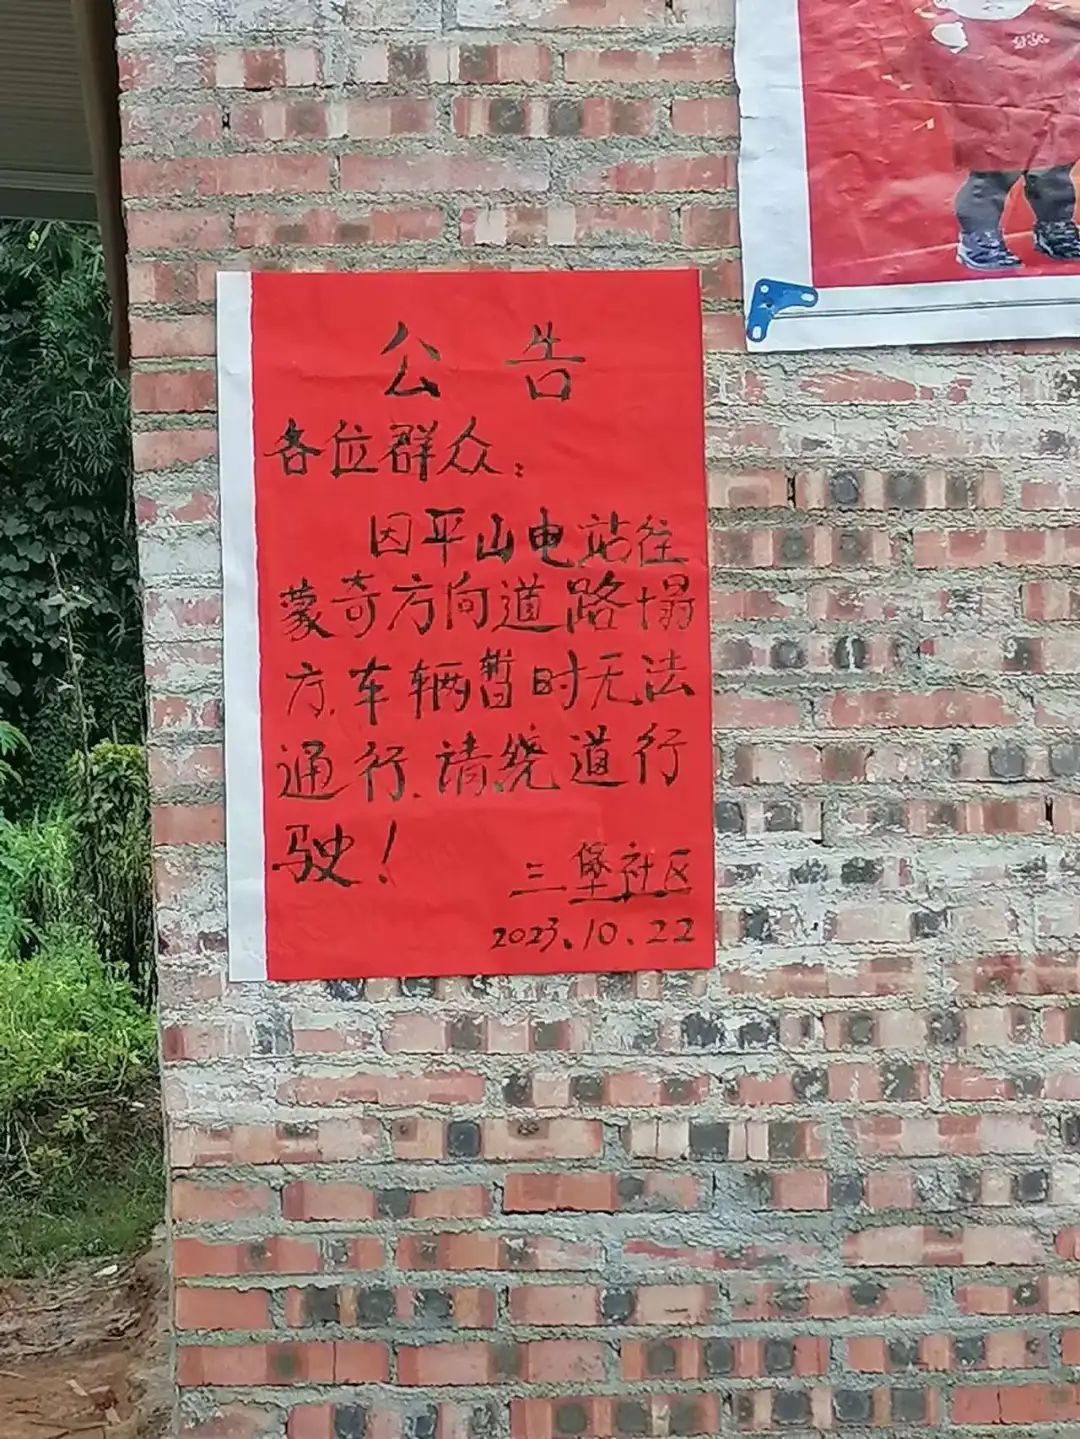 公告
各位群众：
因平山电站往
蒙奇方向道路塌
方.车辆暂时无法
通行.请绕道行
驶！
三堡社区
2023.10.22